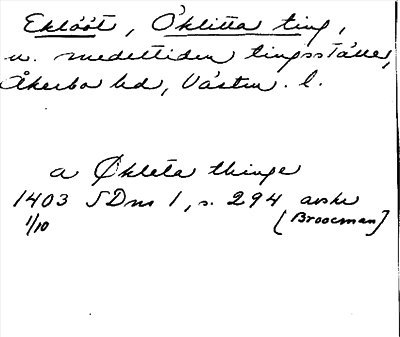 Eklööt, Öklitta ting,
u. medeltiden tingsställe,
Åkerbo hd, Västm. l.
a Økleta thinge
1403 SDns 1, s. 294 avskr
1/10 [Broocman]